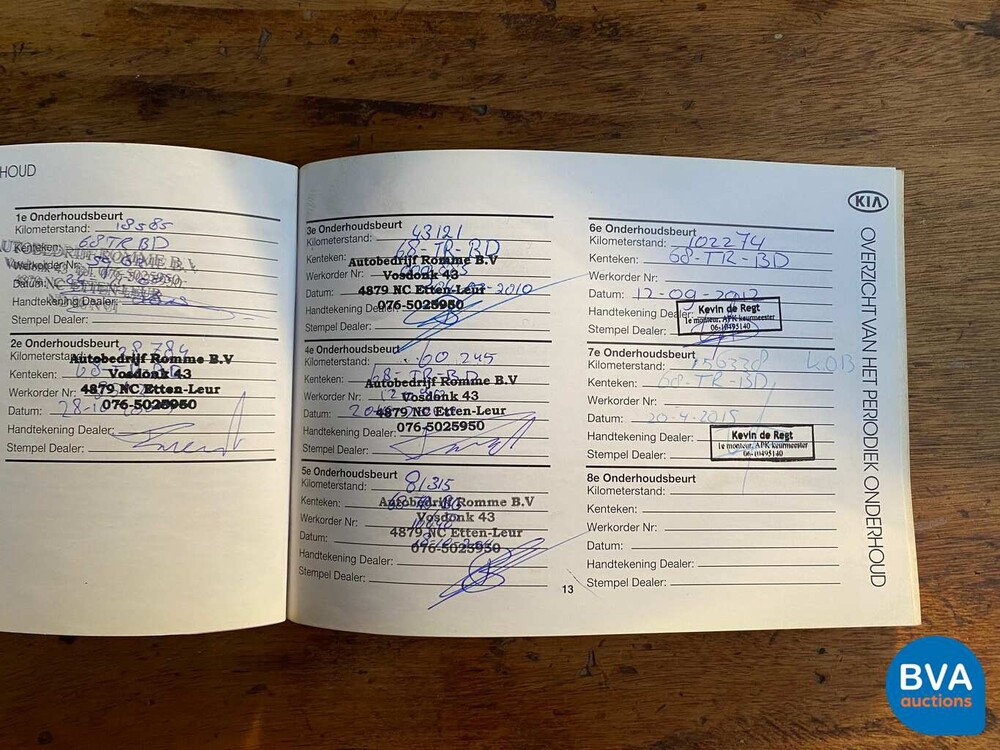 HOUD
1e Onderhoudsbeurt
Kilometerstand: 18585
Kenteken: 68 TR BD
AUTOBEDRIJF ROMME B.V.
Werkorder Nr:
Datum:
Handtekening Dealer:
Stempel Dealer:
2e Onderhoudsbeurt
Kilometerstand: 28.784
Autobedrijf Romme B.V
Kenteken:
Vosdonk 43
Werkorder Nr:
4879 NC Etten-Leur
Datum:
076-5025950
Handtekening Dealer:
Stempel Dealer:
3e Onderhoudsbeurt
Kilometerstand: 43121
Kenteken: 68-TR-BD
Autobedrijf Romme B.V
Werkorder Nr:
Vosdonk 43
Datum: 2010
4879 NC Etten-Leur
Handtekening Dealer:
076-5025950
Stempel Dealer:
4e Onderhoudsbeurt
Kilometerstand: 60.245
Kenteken: 68-TR-BD
Autobedrijf Romme B.V
Werkorder Nr:
Vosdonk 43
Datum:
4879 NC Etten-Leur
Handtekening Dealer:
076-5025950
Stempel Dealer:
5e Onderhoudsbeurt
Kilometerstand: 81315
Kenteken:
Autobedrijf Romme B.V
Werkorder Nr:
Vosdonk 43
Datum:
4879 NC Etten-Leur
076-5025950
Handtekening Dealer:
Stempel Dealer:
13
6e Onderhoudsbeurt
Kilometerstand: 102274
Kenteken: 68-TR-BD
Werkorder Nr:
Datum: 12-09-2012
Handtekening Dealer:
Stempel Dealer:
Kevin de Regt
1e monteur, APK keurmeester
06-10495140
7e Onderhoudsbeurt
Kilometerstand: 156338
Kenteken: 68-TR-BD
Werkorder Nr:
Datum: 20-4-2015
Handtekening Dealer:
Stempel Dealer:
Kevin de Regt
1e monteur, APK keurmeester
06-10495140
8e Onderhoudsbeurt
Kilometerstand:
Kenteken:
Werkorder Nr:
Datum:
Handtekening Dealer:
Stempel Dealer:
KIA
OVERZICHT VAN HET PERIODIEK ONDERHOUD
BVA
auctions